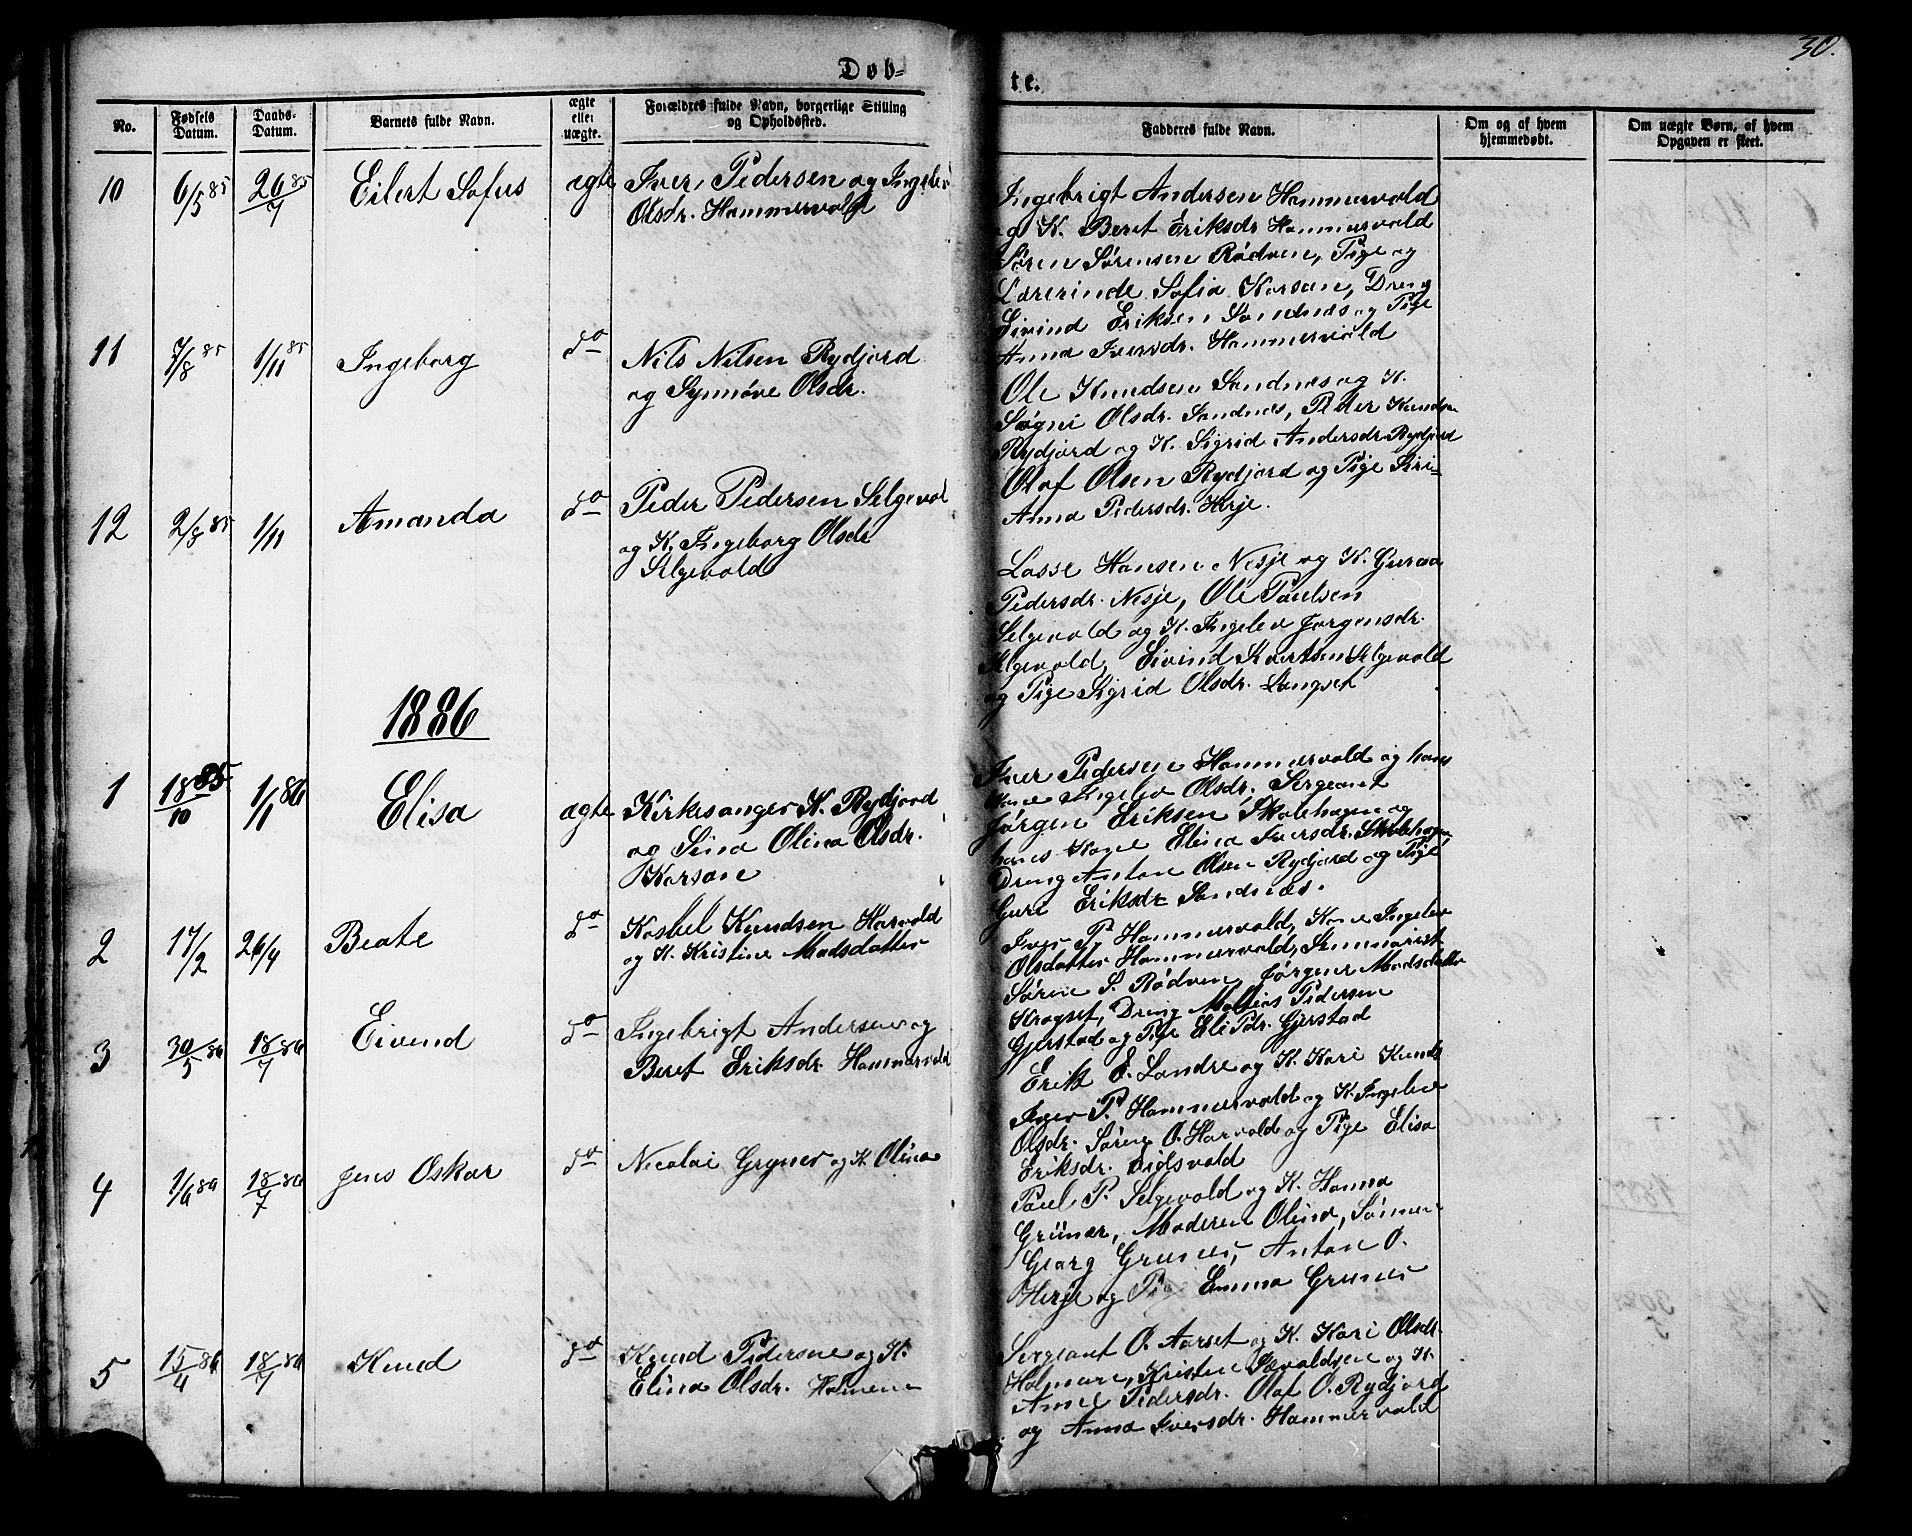 Døb-
te.
30.
No.
Fødsels Datum.
Daabs-Datum.
Barnets fulde Navn.
ægte eller uægte.
Forældres fulde Navn, borgerlige Stilling og Opholdssted.
Fadderes fulde Navn.
Om og af hvem hjemmedøbt.
Om uægte Børn, af hvem Opgaven er skeet.
10 6/5 85 26/7 85 Eilert Sofus ægte Iver Pedersen og Ingelev
Olsdr. Hammervold
Ingebrigt Andersen Hammervold
og K. Beret Eriksdr Hammervold
Søren Sørensen Rødven, Pige og
Lærerinde Sofia Korsan, Dreng
Eivind Eriksen Sandnes og Pige
Anna Iversdr. Hammervold
11 7/8 85 1/11 85 Ingeborg do Nils Nilsen Rydjord
og Synnøve Olsdr.
Ole Knudsen Sandnes og K.
Søgni Olsdr. Sandnes, Peder Knudsen
Rydjord og K. Sigrid Andersdr. Rydjord
Olaf Olsen Rydjord og Pige Siri-
Anna Pedersdr. Herje.
12 2/8 85 1/11 Amanda do Peder Pedersen Selgevol
og K. Ingeborg Olsdr
Selgevold
Lasse Hansen Nesje og K. Guraa
Pedersdr. Nesje, Ole Paulsen
Selgevold og K. Ingelev Jørgensdr.
Selgevold, Eivind Sivertsen Selgevold
og Pige Sigrid Olsdr. Langset
1886
1 18/10 85 1/1 86 Elisa ægte Kirkesanger K. Rydjord
og Sina Olina Olsdr.
Korsan
Iver Pedersen Hammervold og hans
Kone Ingelev Olsdr. Sergeant
Jørgen Eriksen Skolehagen og
hans Kone Elina Iversdr. Skolehagen
Dreng Anton Olsen Rydjord og Pige
Guri Eriksdr Sandnæs.
2 17/2 26/4 Beate do Kosbel Knudsen Harvold
og K. Kristine Madsdatter
Iver P. Hammervold, Kone Ingelev
Olsdatter Hammervold, Seminarist
Søren S. Rødven, Jørgine Madsdatter
Kragset, Dreng Mathias Pedersen
Gjerstad og Pige Eli Pdr. Gjerstad
3 30/5 86 18/7 86 Eivend do Ingebrigt Andersen og
Beret Eriksdr. Hammervold
Erik E. Landre og K. Kari Knuds
Iver P. Hammervold og K. Ingelev
Olsdr. Søren O. Harvold og Pige Elisa
Eriksdr. Eidsvold
4 1/6 86 18/7 86 Jens Oskar do Nicolai Gryner og K. Olina
Paul P. Selgevold og K. Hanna
Grüner, Moderen Olina, Sønnen
Georg Gruner, Anton O.
Herje og Pige Emma Gruner
5 15/4 86 18/7 86 Knud do Knud Pedersen og K.
Elina Olsdr. Holmene
Sergeant O. Aarset og K. Kari Olsdr.
Holmene, Kristen Sevaldsen og K.
Anne Pedersdr. Olaf O. Rydjord
og Anna Iversdr. Hammervold